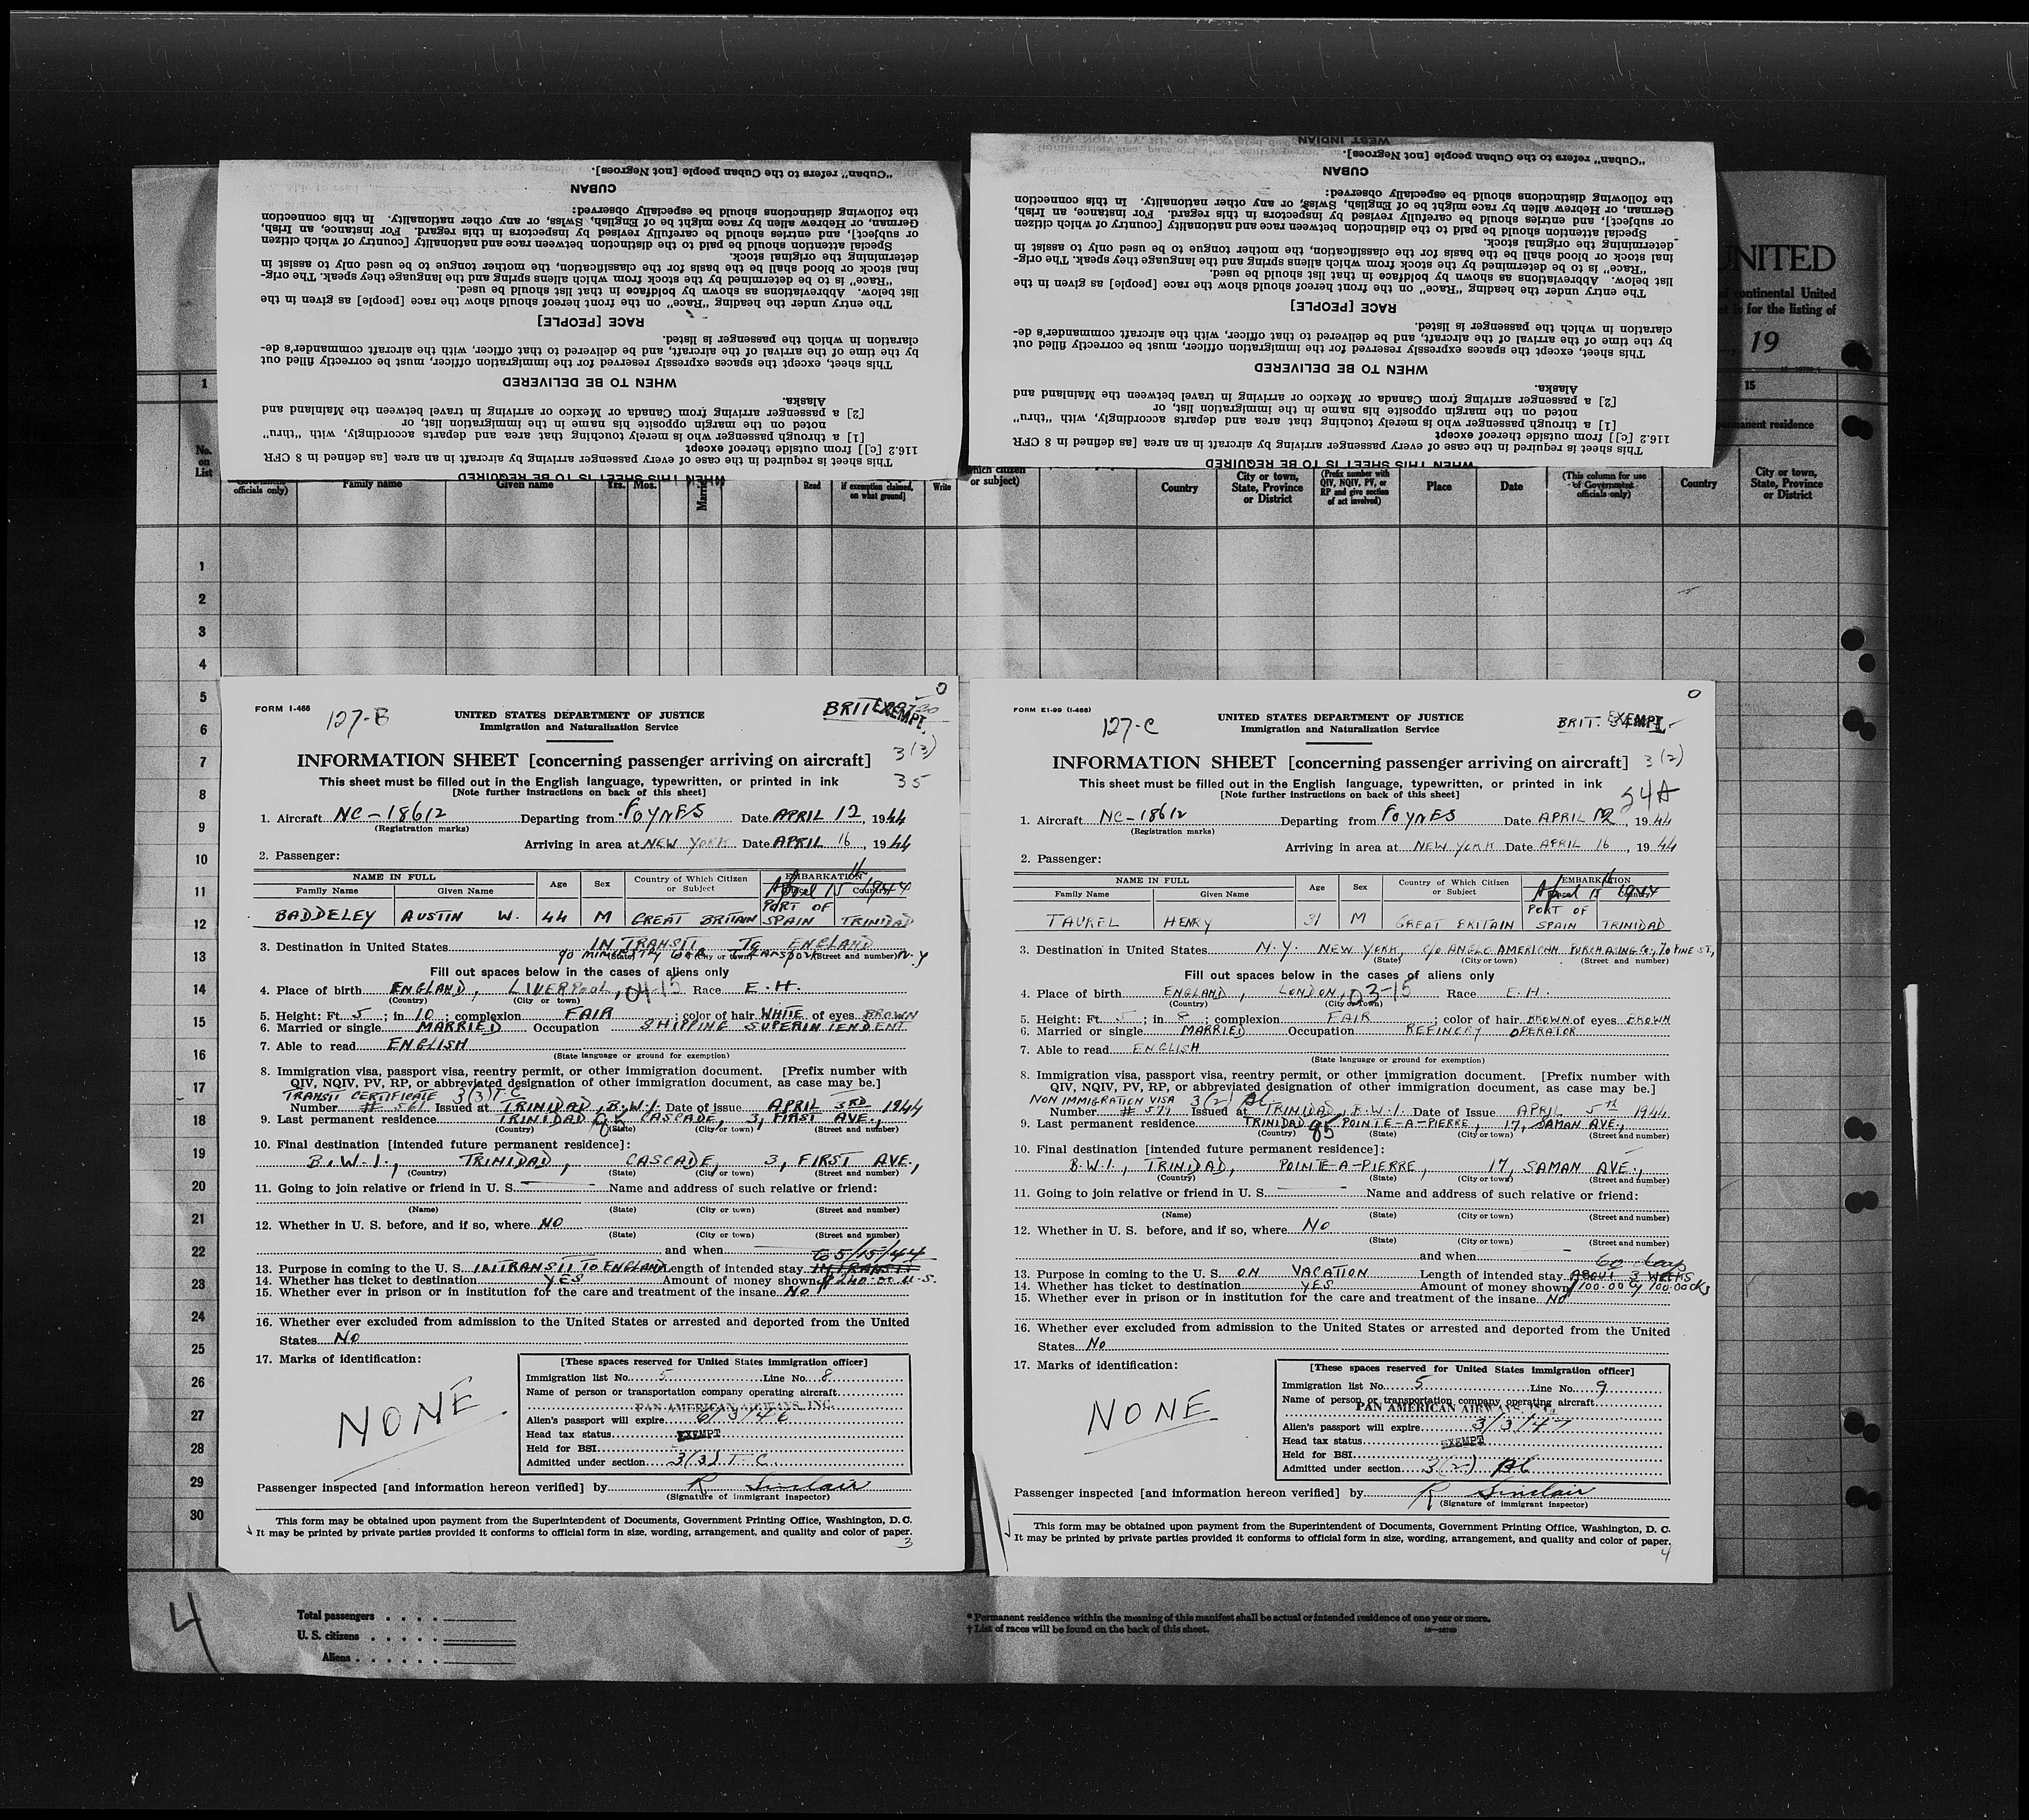 "Cuban" refers to the Cuban people [not Negroes].
CUBAN
the following distinctions should be especially observed:
German, or Hebrew alien by race might be of English, Swiss, or any other nationality. In this connection
or subject], and entries should be carefully revised by inspectors in this regard. For instance, an Irish,
Special attention should be paid to the distinction between race and nationality [country of which citizen
determining the original stock.
inal stock or blood shall be the basis for the classification, the mother tongue to be used only to assist in
"Race" is to be determined by the stock from which aliens spring and the language they speak. The orig-
list below. Abbreviations as shown by boldface in that list should be used.
The entry under the heading "Race" on the front hereof should show the race [people] as given in the
RACE [PEOPLE]
claration in which the passenger is listed.
by the time of the arrival of the aircraft, and be delivered to that officer, with the aircraft commander's de-
This sheet, except the spaces expressly reserved for the immigration officer, must be correctly filled out
WHEN TO BE DELIVERED
Alaska.
[2] a passenger arriving from Canada or Mexico or arriving in travel between the Mainland and
noted on the margin opposite his name in the immigration list, or
[1] a through passenger who is merely touching that area and departs accordingly, with "thru"
116.2 [c]] from outside thereof except
This sheet is required in the case of every passenger arriving by aircraft in an area [as defined in 8 CFR
WHEN THIS SHEET IS TO BE REQUIRED
WEST INDIAN
"Cuban" refers to the Cuban people [not Negroes].
CUBAN
the following distinctions should be especially observed:
German, or Hebrew alien by race might be of English, Swiss, or any other nationality. In this connection
or subject], and entries should be carefully revised by inspectors in this regard. For instance, an Irish,
Special attention should be paid to the distinction between race and nationality [country of which citizen
determining the original stock.
inal stock or blood shall be the basis for the classification, the mother tongue to be used only to assist in
"Race" is to be determined by the stock from which aliens spring and the language they speak. The orig-
list below. Abbreviations as shown by boldface in that list should be used.
The entry under the heading "Race" on the front hereof should show the race [people] as given in the
RACE [PEOPLE]
claration in which the passenger is listed.
by the time of the arrival of the aircraft, and be delivered to that officer, with the aircraft commander's de-
This sheet, except the spaces expressly reserved for the immigration officer, must be correctly filled out
WHEN TO BE DELIVERED
Alaska.
[2] a passenger arriving from Canada or Mexico or arriving in travel between the Mainland and
noted on the margin opposite his name in the immigration list, or
[1] a through passenger who is merely touching that area and departs accordingly, with "thru"
116.2 [c]] from outside thereof except
This sheet is required in the case of every passenger arriving by aircraft in an area [as defined in 8 CFR
WHEN THIS SHEET IS TO BE REQUIRED
UNITED
continental United
is for the listing of
, 19
1 15
permanent residence
No. on List
officials only) Family name Given name Yrs. Mos. Married Read if exemption claimed, on what ground] Write
which citizen or subject) Country City or town, State, Province or District (Prefix number with QIV, NQIV, PV, or RP and give section of act involved) Place Date (This column for use of Government officials only) Country City or town, State, Province or District
1
2
3
4
5
6
7
8
9
10
11
12
13
14
15
16
17
18
19
20
21
22
23
24
25
26
27
28
29
30
0
FORM I-466 127-B UNITED STATES DEPARTMENT OF JUSTICE BRIT EXEMPT.
Immigration and Naturalization Service
3(3)
INFORMATION SHEET [concerning passenger arriving on aircraft]
This sheet must be filled out in the English language, typewritten, or printed in ink 35
[Note further instructions on back of this sheet]
1. Aircraft NC-18612 Departing from FOYNES Date APRIL 12, 1944
(Registration marks)
Arriving in area at NEW YORK Date APRIL 16, 1944
2. Passenger:
NAME IN FULL Age Sex Country of Which Citizen or Subject EMBARKATION
Family Name Given Name April 15 1944 Country
BADDELEY AUSTIN W. 44 M GREAT BRITAIN PORT OF SPAIN TRINIDAD
3. Destination in United States IN TRANSIT TO ENGLAND
% MINISTRY WAR TRANSPORT N.Y
(State) (City or town) (Street and number)
Fill out spaces below in the cases of aliens only
4. Place of birth ENGLAND, LIVERPOOL, 04-15 Race E.H.
(Country) (City or town)
5. Height: Ft. 5; in 10; complexion FAIR; color of hair WHITE of eyes BROWN
6. Married or single MARRIED Occupation SHIPPING SUPERINTENDENT
7. Able to read ENGLISH
(State language or ground for exemption)
8. Immigration visa, passport visa, reentry permit, or other immigration document. [Prefix number with
QIV, NQIV, PV, RP, or abbreviated designation of other immigration document, as case may be.]
TRANSIT CERTIFICATE 3(3) T.C
Number # 561 Issued at TRINIDAD, B.W.I. Date of issue APRIL 3RD 1944
9. Last permanent residence TRINIDAD 85 CASCADE, 3, FIRST AVE.,
(Country) (State) (City or town) (Street and number)
10. Final destination [intended future permanent residence]:
B.W.I., TRINIDAD, CASCADE, 3, FIRST AVE.,
(Country) (State) (City or town) (Street and number)
11. Going to join relative or friend in U. S. Name and address of such relative or friend:
(Name) (State) (City or town) (Street and number)
12. Whether in U. S. before, and if so, where NO
(State) (City or town) (Street and number)
and when to 5/15/44
13. Purpose in coming to the U. S. IN TRANSIT TO ENGLAND Length of intended stay IN TRANSIT
14. Whether has ticket to destination YES Amount of money shown $240.00 U.S.
15. Whether ever in prison or in institution for the care and treatment of the insane NO
16. Whether ever excluded from admission to the United States or arrested and deported from the United
States NO
17. Marks of identification:
NONE
[These spaces reserved for United States immigration officer]
Immigration list No. 5 Line No. 8
Name of person or transportation company operating aircraft
PAN AMERICAN AIRWAYS, INC.
Alien's passport will expire 6/3/46
Head tax status EXEMPT
Held for BSI
Admitted under section 3(3) T.C
Passenger inspected [and information hereon verified] by R Sinclair
(Signature of immigrant inspector)
This form may be obtained upon payment from the Superintendent of Documents, Government Printing Office, Washington, D. C.
It may be printed by private parties provided it conforms to official form in size, wording, arrangement, and quality and color of paper.
3
0
FORM E1-99 (I-466) 127-C UNITED STATES DEPARTMENT OF JUSTICE BRIT. EXEMPT
Immigration and Naturalization Service
INFORMATION SHEET [concerning passenger arriving on aircraft] 3(2)
This sheet must be filled out in the English language, typewritten, or printed in ink
[Note further instructions on back of this sheet] 54A
1. Aircraft NC-18612 Departing from FOYNES Date APRIL 12, 1944
(Registration marks)
Arriving in area at NEW YORK Date APRIL 16, 1944
2. Passenger:
NAME IN FULL Age Sex Country of Which Citizen or Subject EMBARKATION
Family Name Given Name April 15 1944 Country
TAUREL HENRY 31 M GREAT BRITAIN PORT OF SPAIN TRINIDAD
3. Destination in United States N.Y. NEW YORK, C/O ANGLO AMERICAN PURCHASING Co., 70 PINE ST,
(State) (City or town) (Street and number)
Fill out spaces below in the cases of aliens only
4. Place of birth ENGLAND, LONDON, 03-15 Race E.H.
(Country) (City or town)
5. Height: Ft. 5; in 8; complexion FAIR; color of hair BROWN of eyes BROWN
6. Married or single MARRIED Occupation REFINERY OPERATOR
7. Able to read ENGLISH
(State language or ground for exemption)
8. Immigration visa, passport visa, reentry permit, or other immigration document. [Prefix number with
QIV, NQIV, PV, RP, or abbreviated designation of other immigration document, as case may be.]
NON IMMIGRATION VISA 3(2)
Number # 577 Issued at TRINIDAD, B.W.I. Date of Issue APRIL 5th 1944
9. Last permanent residence TRINIDAD 85 POINTE-A-PIERRE, 17, SAMAN AVE.,
(Country) (State) (City or town) (Street and number)
10. Final destination [intended future permanent residence]:
B.W.I., TRINIDAD, POINTE-A-PIERRE, 17, SAMAN AVE.,
(Country) (State) (City or town) (Street and number)
11. Going to join relative or friend in U. S. Name and address of such relative or friend:
(Name) (State) (City or town) (Street and number)
12. Whether in U. S. before, and if so, where NO
(State) (City or town) (Street and number)
and when
60 days
13. Purpose in coming to the U. S. ON VACATION Length of intended stay ABOUT 3 WEEKS
14. Whether has ticket to destination YES Amount of money shown $100.00 700.00 cks
15. Whether ever in prison or in institution for the care and treatment of the insane NO
16. Whether ever excluded from admission to the United States or arrested and deported from the United
States NO
17. Marks of identification:
NONE
[These spaces reserved for United States immigration officer]
Immigration list No. 5 Line No. 9
Name of person or transportation company operating aircraft
PAN AMERICAN AIRWAYS, INC.
Alien's passport will expire 3/3/47
Head tax status EXEMPT
Held for BSI
Admitted under section 3(2)
Passenger inspected [and information hereon verified] by R Sinclair
(Signature of immigrant inspector)
This form may be obtained upon payment from the Superintendent of Documents, Government Printing Office, Washington, D. C.
It may be printed by private parties provided it conforms to official form in size, wording, arrangement, and quality and color of paper.
4
4
Total passengers
U. S. citizens
Aliens
* Permanent residence within the meaning of this manifest shall be actual or intended residence of one year or more.
† List of races will be found on the back of this sheet.